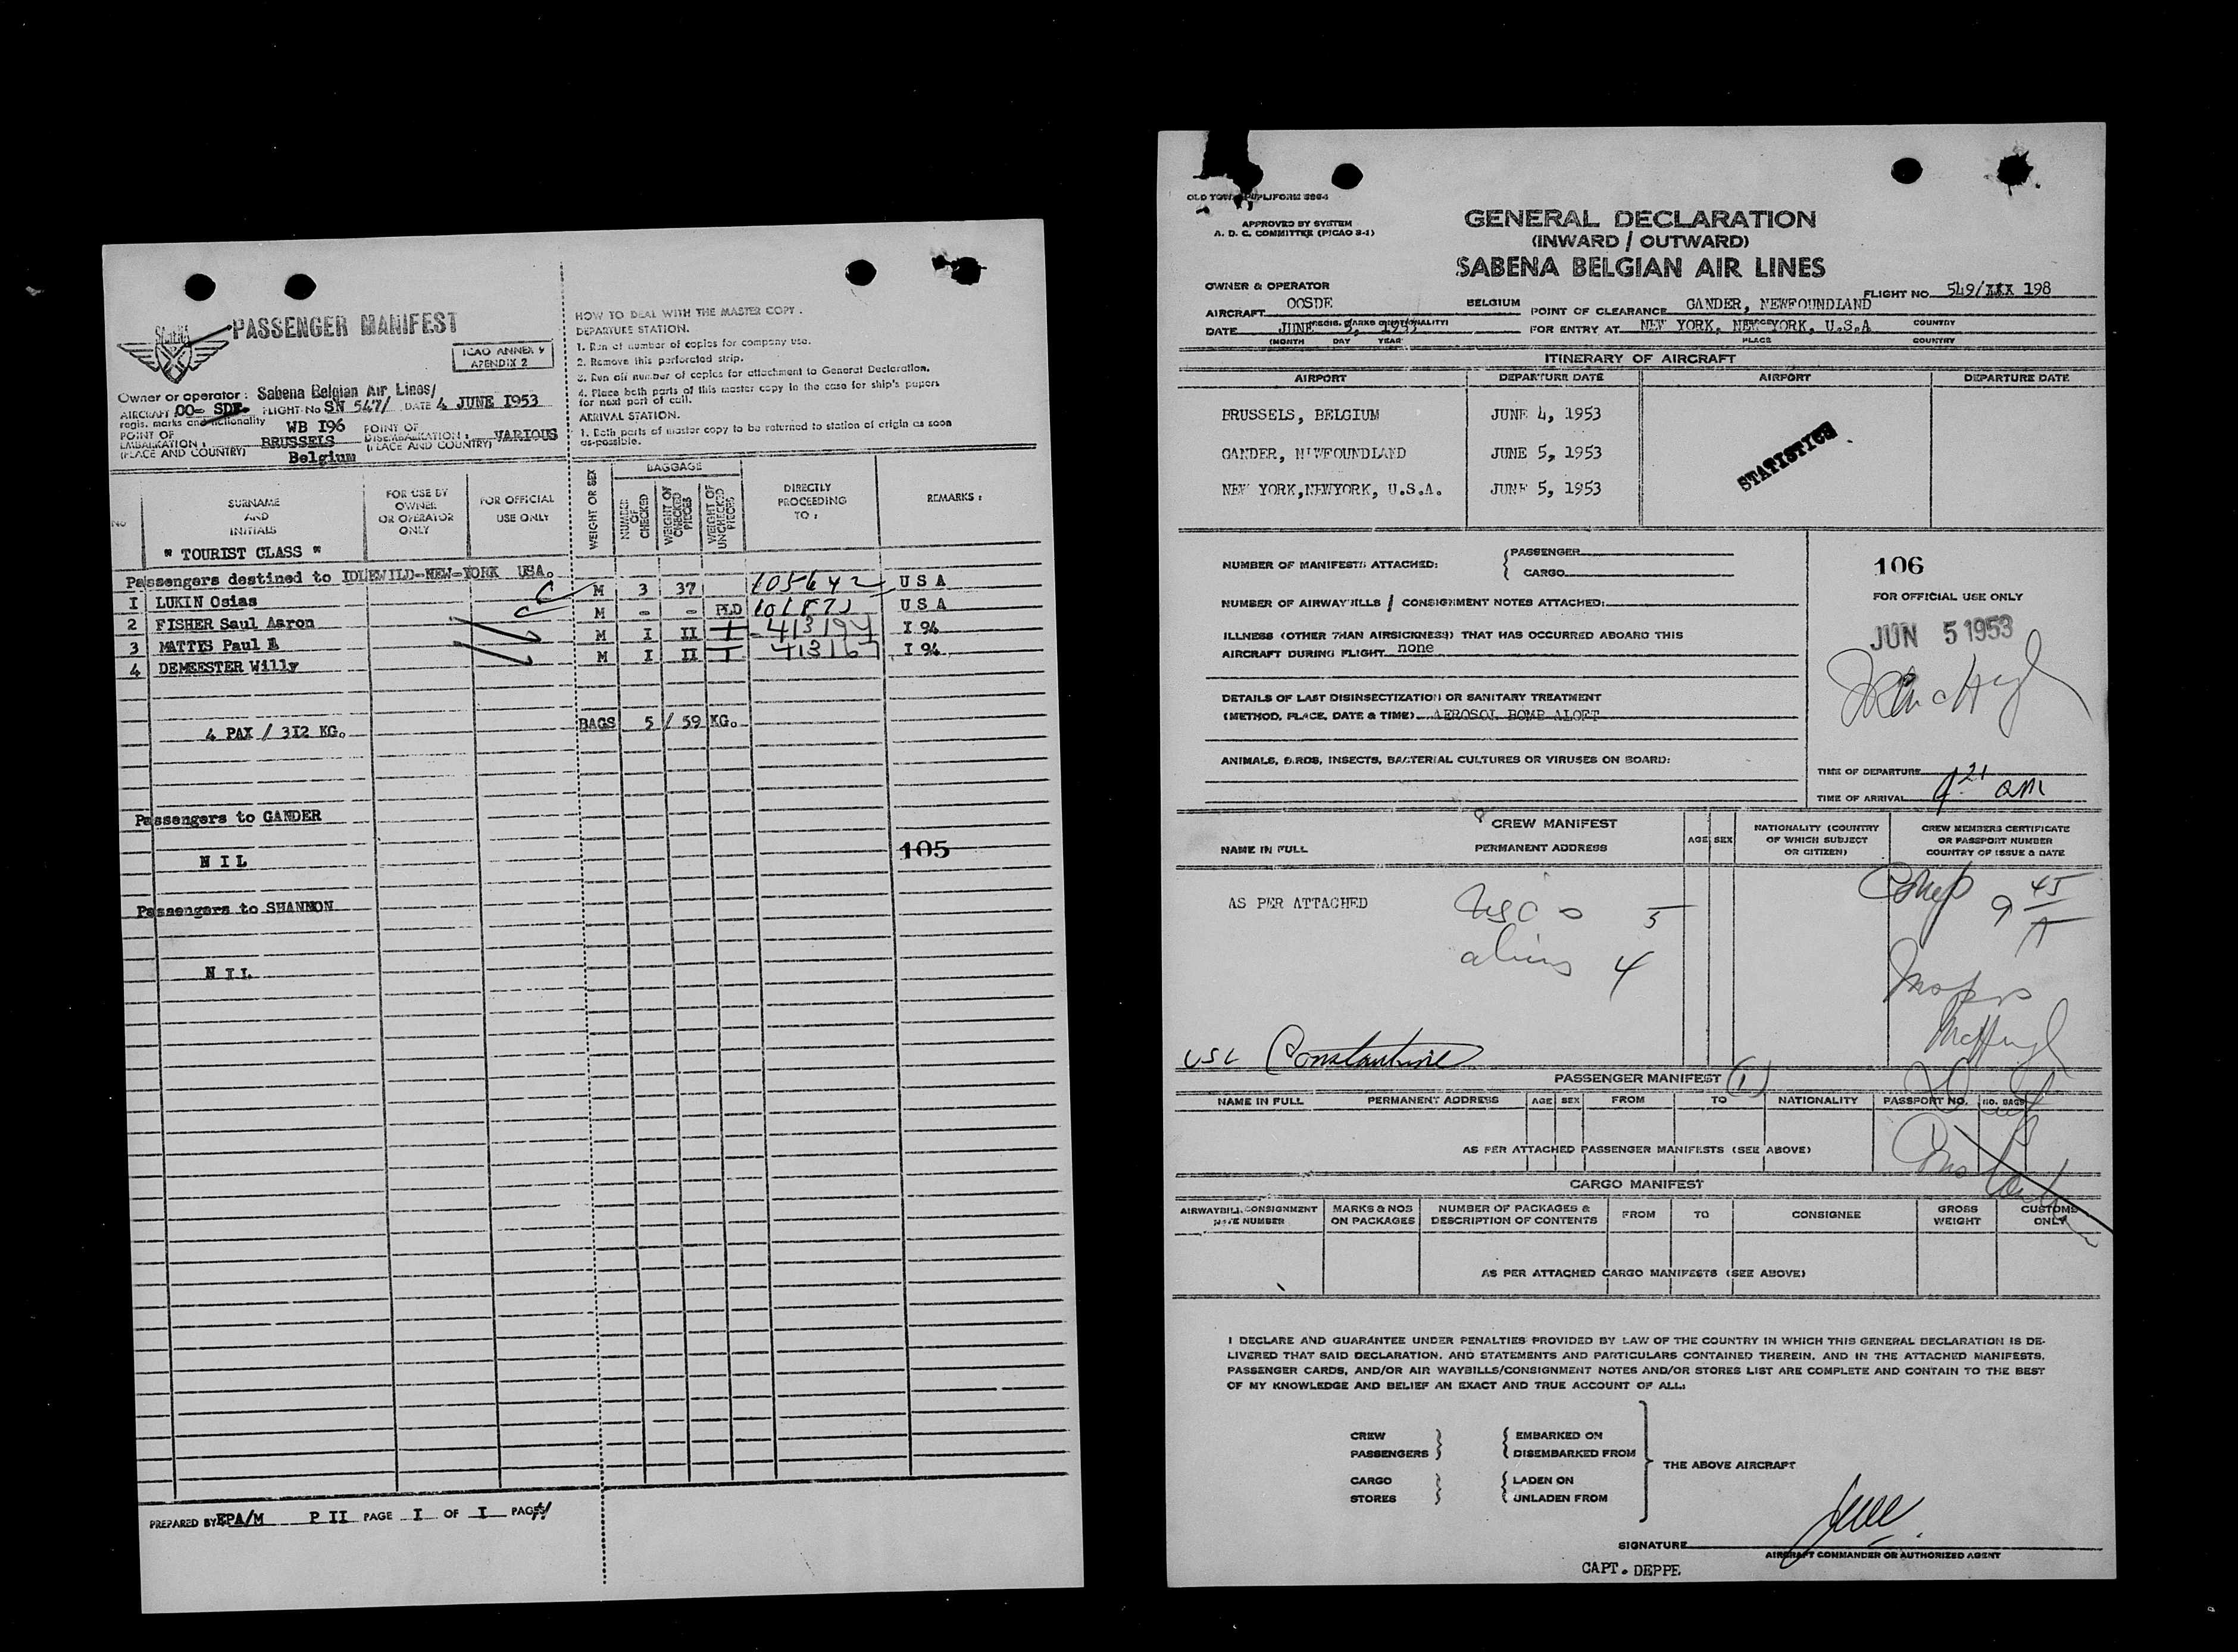 SABENA
PASSENGER MANIFEST
ICAO ANNEX 9
APENDIX 2
Owner or operator : Sabena Belgian Air Lines/
AIRCRAFT OO- SDE. FLIGHT No SN 547/ DATE 4 JUNE 1953
regis. marks and nationality WB I96
POINT OF EMBARKATION : BRUSSELS POINT OF DISEMBARKATION : VARIOUS
(PLACE AND COUNTRY) Belgium (PLACE AND COUNTRY)
HOW TO DEAL WITH THE MASTER COPY .
DEPARTURE STATION.
1. Run of number of copies for company use.
2. Remove this perforated strip.
3. Run off number of copies for attachment to General Declaration.
4. Place both parts of this master copy in the case for ship's papers
for next port of call.
ARRIVAL STATION.
1. Both parts of master copy to be returned to station of origin as soon
as-possible.
No
SURNAME
AND
INITIALS
FOR USE BY
OWNER
OR OPERATOR
ONLY
FOR OFFICIAL
USE ONLY
WEIGHT OR SEX
BAGGAGE
NUMBER OF CHECKED
WEIGHT OF CHECKED PIECES
WEIGHT OF UNCHECKED PIECES
DIRECTLY
PROCEEDING
TO :
REMARKS :
" TOURIST CLASS "
Passengers destined to IDLEWILD-NEW-YORK USA.
I LUKIN Osias C M 3 37 105642 U S A
2 FISHER Saul Aaron C M - - PLD U S A
3 MATTYS Paul M I II 413197 I 94
4 DEMEESTER Willy M I II 413167 I 94
4 PAX / 3I2 KG. BAGS 5 / 59 KG.
Passengers to GANDER
N I L
105
Passengers to SHANNON
N I L
PREPARED BY EPA/M P II PAGE I OF I PAGES/
OLD TOWN DUPLIFORM
APPROVED BY SYSTEM
A. D. C. COMMITTEE (PICAO S-1)
GENERAL DECLARATION
(INWARD / OUTWARD)
SABENA BELGIAN AIR LINES
OWNER & OPERATOR
AIRCRAFT OOSDE BELGIUM
(REGIS. MARKS & NATIONALITY)
DATE JUNE 5, 1953
(MONTH DAY YEAR
FLIGHT NO. 549/XXX 198
POINT OF CLEARANCE GANDER, NEWFOUNDLAND
PLACE COUNTRY
FOR ENTRY AT NEW YORK, NEW YORK, U.S.A
PLACE COUNTRY
ITINERARY OF AIRCRAFT
AIRPORT DEPARTURE DATE AIRPORT DEPARTURE DATE
BRUSSELS, BELGIUM JUNE 4, 1953
GANDER, NEWFOUNDLAND JUNE 5, 1953
NEW YORK,NEWYORK, U.S.A. JUNE 5, 1953
STATISTICS
NUMBER OF MANIFESTS ATTACHED: PASSENGER
CARGO
NUMBER OF AIRWAYBILLS / CONSIGNMENT NOTES ATTACHED:
ILLNESS (OTHER THAN AIRSICKNESS) THAT HAS OCCURRED ABOARD THIS
AIRCRAFT DURING FLIGHT none
DETAILS OF LAST DISINSECTIZATION OR SANITARY TREATMENT
(METHOD, PLACE, DATE & TIME) AEROSOL BOMB ALOFT
ANIMALS, BIRDS, INSECTS, BACTERIAL CULTURES OR VIRUSES ON BOARD:
106
FOR OFFICIAL USE ONLY
JUN 5 1953
TIME OF DEPARTURE
TIME OF ARRIVAL 9 21 am
CREW MANIFEST
NAME IN FULL PERMANENT ADDRESS AGE SEX
NATIONALITY (COUNTRY
OF WHICH SUBJECT
OR CITIZEN)
CREW MEMBERS CERTIFICATE
OR PASSPORT NUMBER
COUNTRY OF ISSUE & DATE
AS PER ATTACHED
uscs 5
aliens 4
9 45 A
Insps
McHugh
USC Constantine
PASSENGER MANIFEST (1)
NAME IN FULL PERMANENT ADDRESS AGE SEX FROM TO NATIONALITY PASSPORT NO. NO. BAGS
AS PER ATTACHED PASSENGER MANIFESTS (SEE ABOVE)
CARGO MANIFEST
AIRWAYBILL CONSIGNMENT
NOTE NUMBER
MARKS & NOS
ON PACKAGES
NUMBER OF PACKAGES &
DESCRIPTION OF CONTENTS
FROM TO CONSIGNEE
GROSS
WEIGHT
CUSTOMS
ONLY
AS PER ATTACHED CARGO MANIFESTS (SEE ABOVE)
I DECLARE AND GUARANTEE UNDER PENALTIES PROVIDED BY LAW OF THE COUNTRY IN WHICH THIS GENERAL DECLARATION IS DE-
LIVERED THAT SAID DECLARATION, AND STATEMENTS AND PARTICULARS CONTAINED THEREIN, AND IN THE ATTACHED MANIFESTS,
PASSENGER CARDS, AND/OR AIR WAYBILLS/CONSIGNMENT NOTES AND/OR STORES LIST ARE COMPLETE AND CONTAIN TO THE BEST
OF MY KNOWLEDGE AND BELIEF AN EXACT AND TRUE ACCOUNT OF ALL:
CREW EMBARKED ON
PASSENGERS DISEMBARKED FROM
THE ABOVE AIRCRAFT
CARGO LADEN ON
STORES UNLADEN FROM
SIGNATURE
AIRCRAFT COMMANDER OR AUTHORIZED AGENT
CAPT. DEPPE